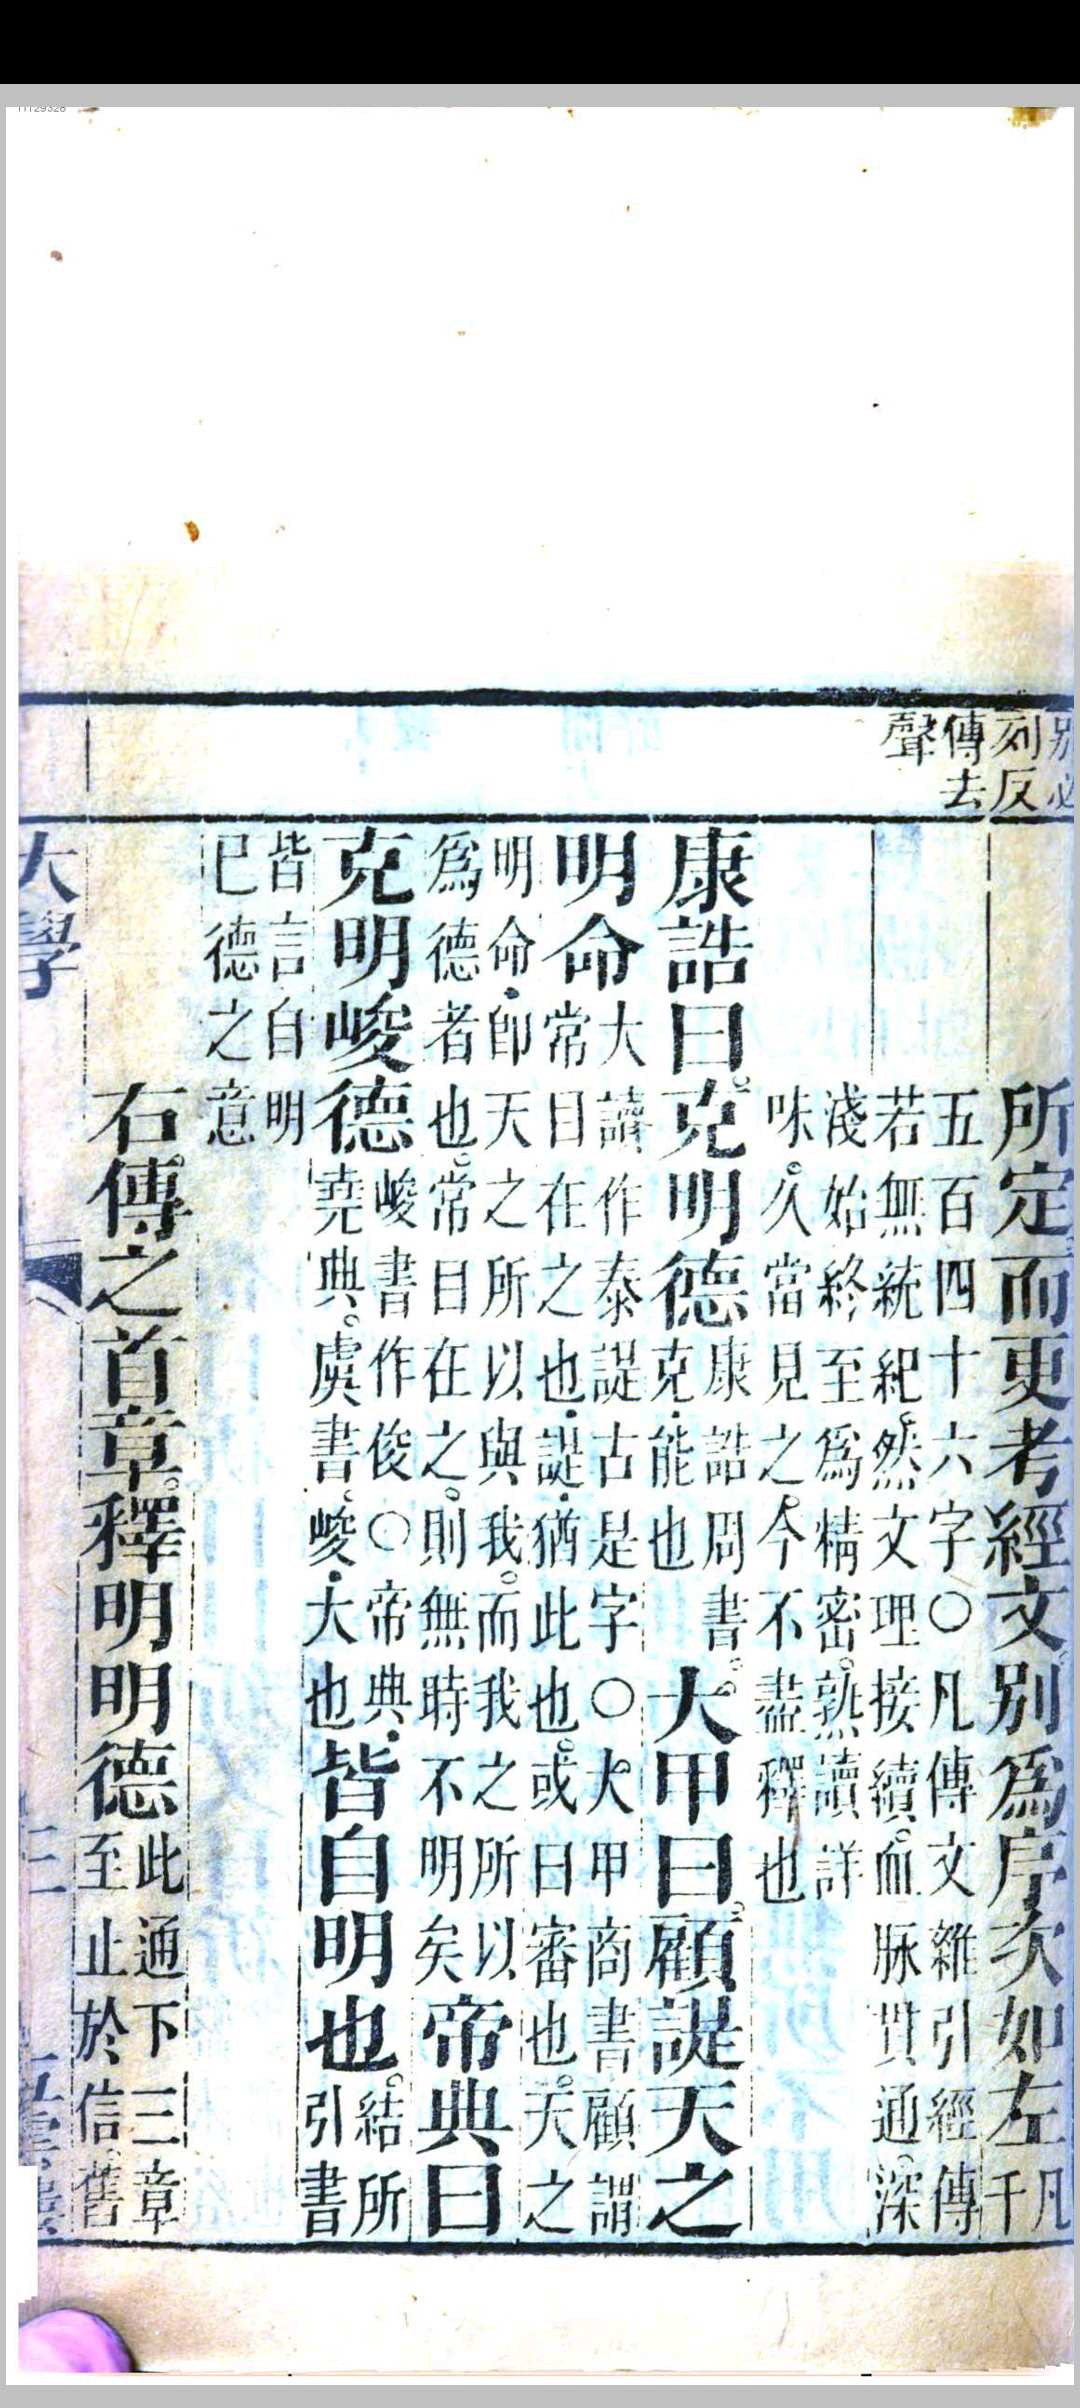 刻反
傳去
聲
所定而更考經文別爲序次如左
凡
千
五百四十六字○凡傳文雜引經傳
若無統紀然文理接續血脉貫通深
淺始終至爲精密熟讀詳
味久當見之今不盡釋也
康誥曰克明德
康誥周書
克能也
大甲曰顧諟天之
明命
大讀作泰諟古是字○大甲商書顧謂
常目在之也諟猶此也或曰審也天之
明命卽天之所以與我而我之所以
爲德者也常目在之則無時不明矣
帝典曰
克明峻德
峻書作俊○帝典
堯典虞書峻大也
皆自明也
結所
引書
皆言自明
已德之意
右傳之首章釋明明德
此通下三章
至止於信舊
大學